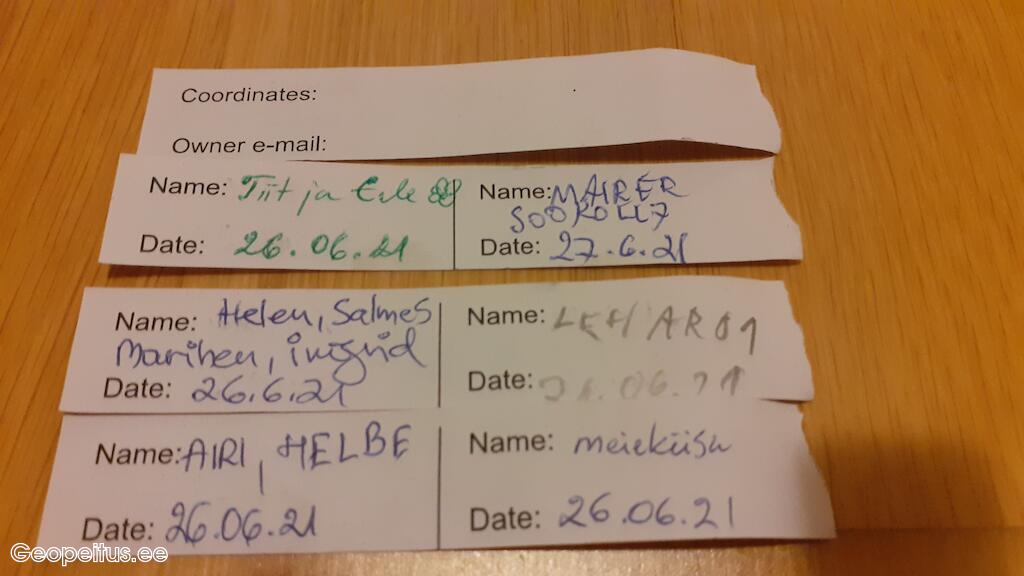 Coordinates:
Owner e-mail:
Name: Tiit ja Eele
Date: 26.06.21
Name: MAIRER
SOOKOLL7
Date: 27.6.21
Name: Helen, Salmes
Marihen, ingrid
Date: 26.6.21
Name: LEHAR01
Date: 26.06.21
Name: AIRI, HELBE
Date: 26.06.21
Name: meiekiisu
Date: 26.06.21
Geopeitus.ee